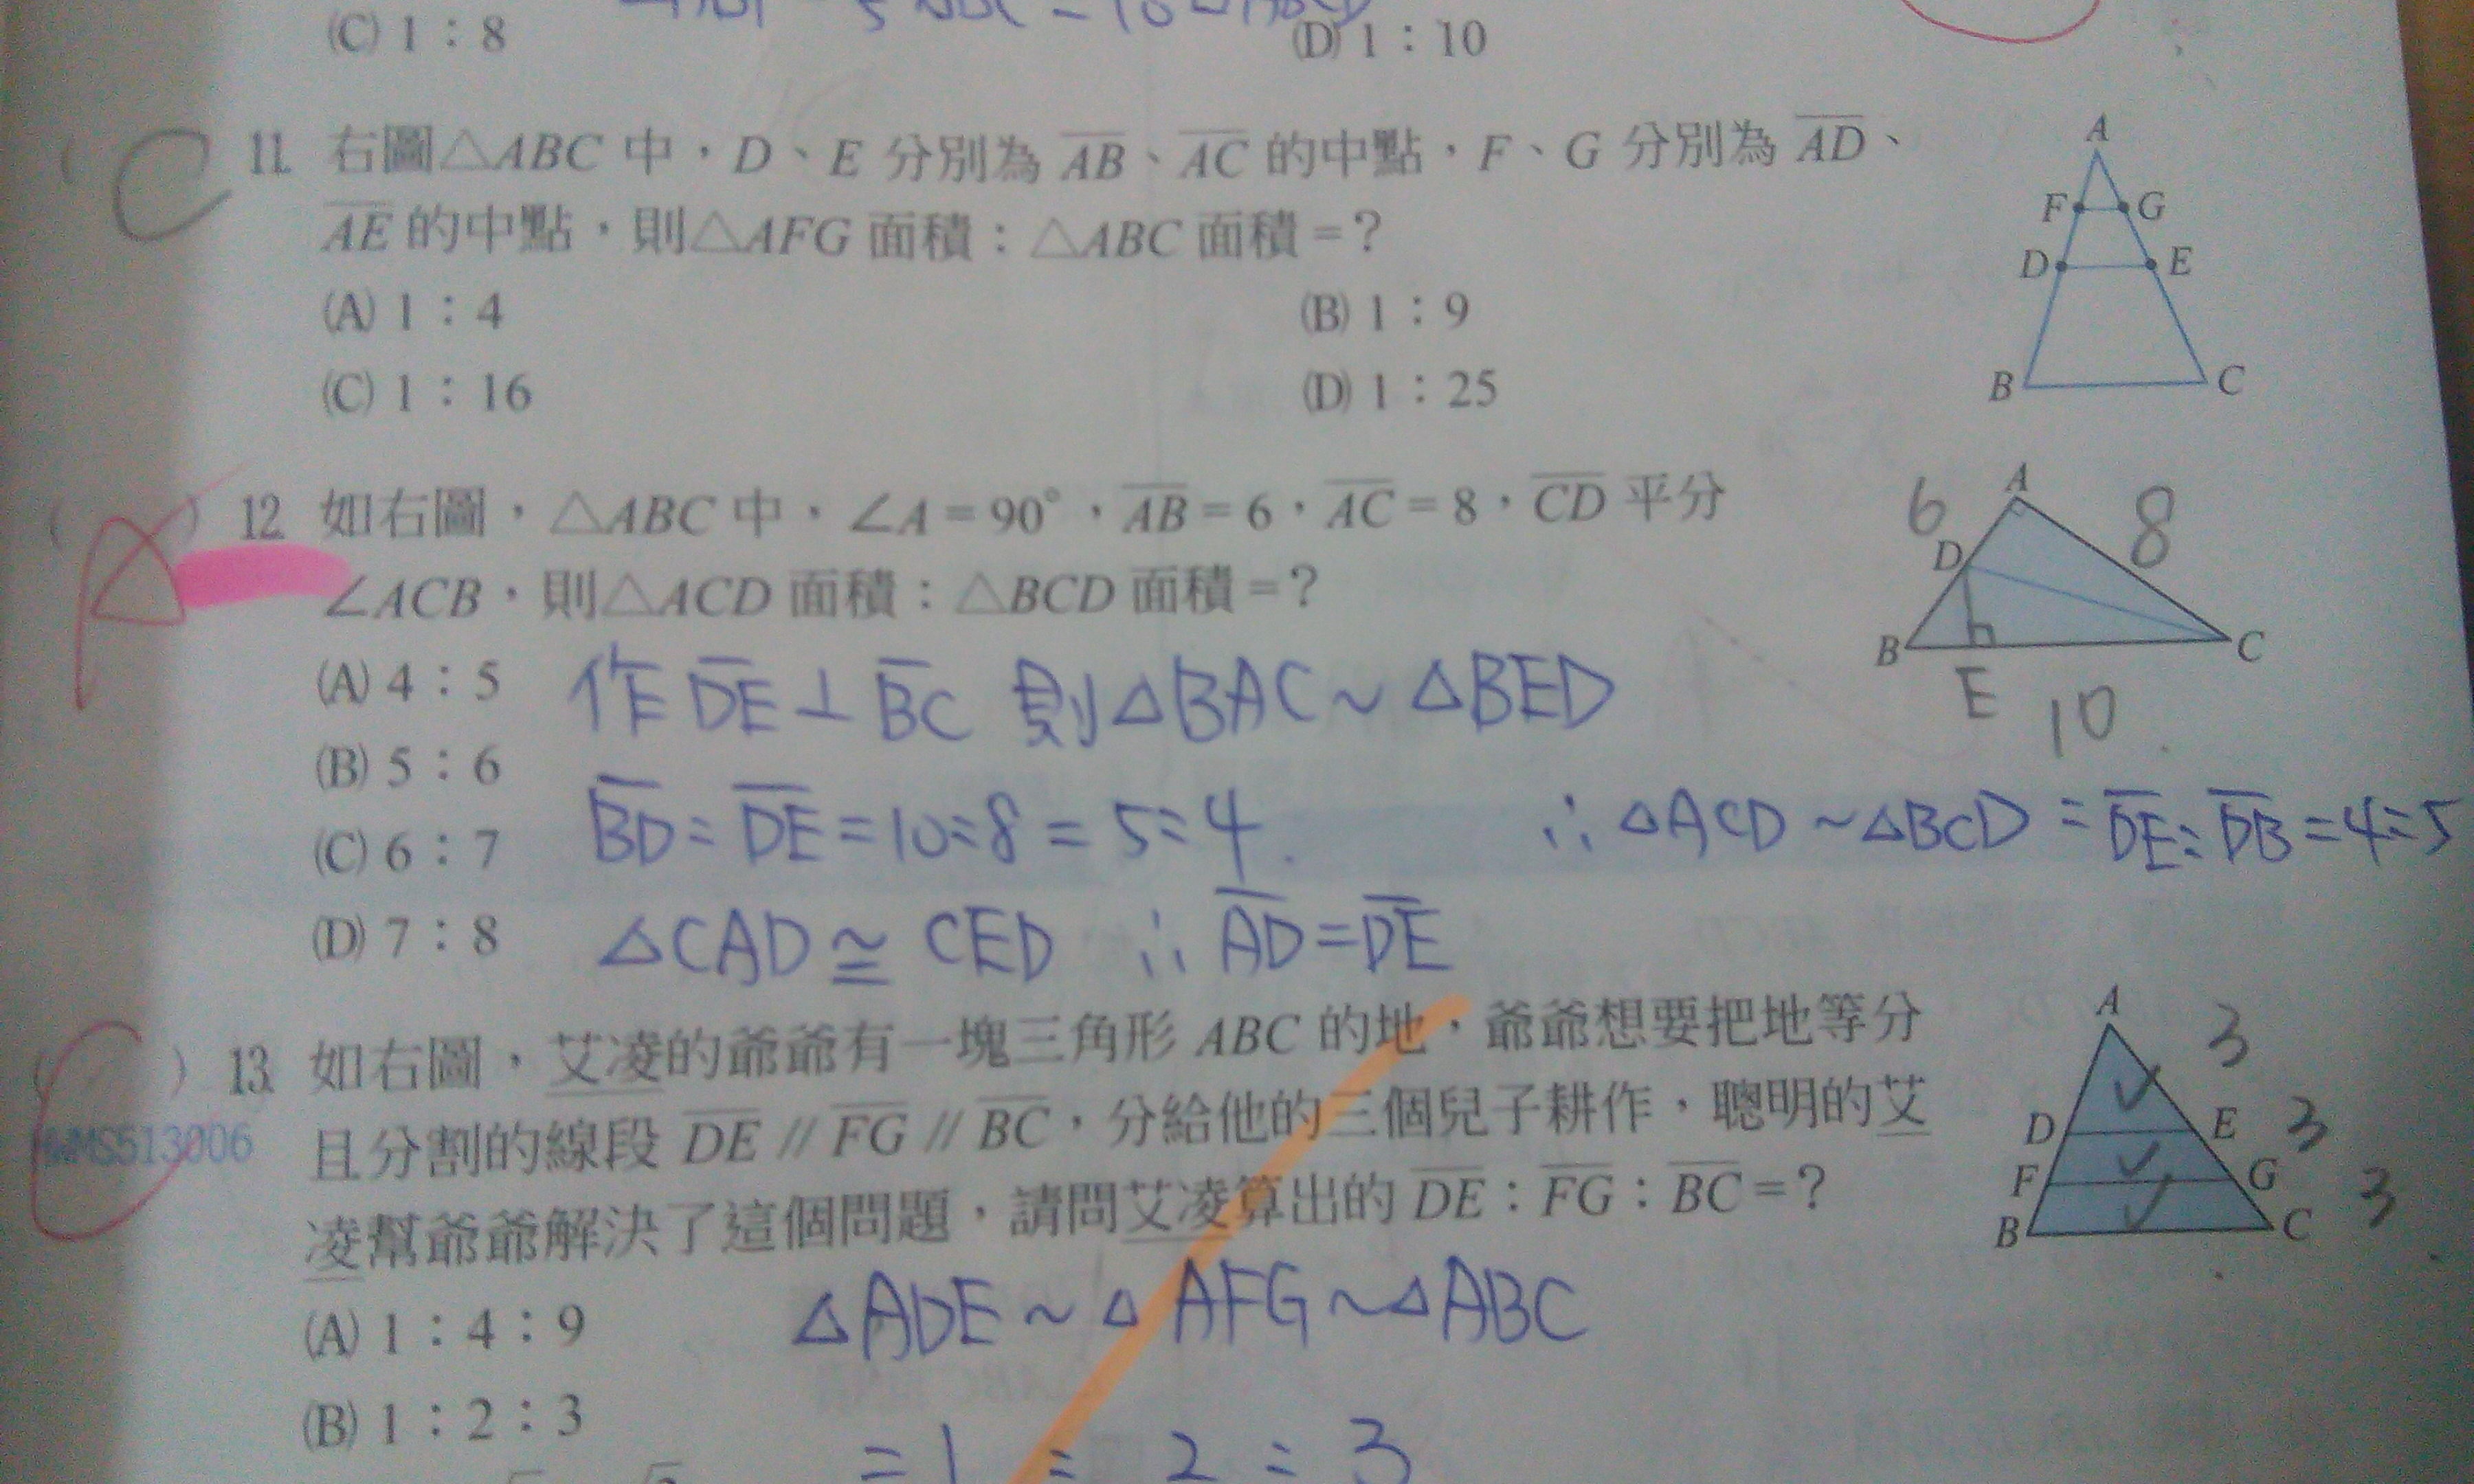 (C) 1：8
(D) 1：10
C
11. 右圖△ABC 中，D、E 分別為 AB、AC 的中點，F、G 分別為 AD、
AE 的中點，則△AFG 面積：△ABC 面積＝？
(A) 1：4
(B) 1：9
(C) 1：16
(D) 1：25
A
F
G
D
E
B
C
A
( ) 12. 如右圖，△ABC 中，∠A＝90°，AB＝6，AC＝8，CD 平分
∠ACB，則△ACD 面積：△BCD 面積＝？
(A) 4：5
(B) 5：6
(C) 6：7
(D) 7：8
A
6
8
D
B
C
E
10
作 DE⊥BC 則△BAC~△BED
BD：DE＝10：8＝5：4
∴△ACD~△BCD＝DE：DB＝4：5
△CAD≅CED ∴AD＝DE
C
( ) 13. 如右圖，艾凌的爺爺有一塊三角形 ABC 的地，爺爺想要把地等分
且分割的線段 DE // FG // BC，分給他的三個兒子耕作，聰明的艾
凌幫爺爺解決了這個問題，請問艾凌算出的 DE：FG：BC＝？
(A) 1：4：9
(B) 1：2：3
A
3
D
E
3
F
G
3
B
C
△ADE~△AFG~△ABC
＝1：2：3